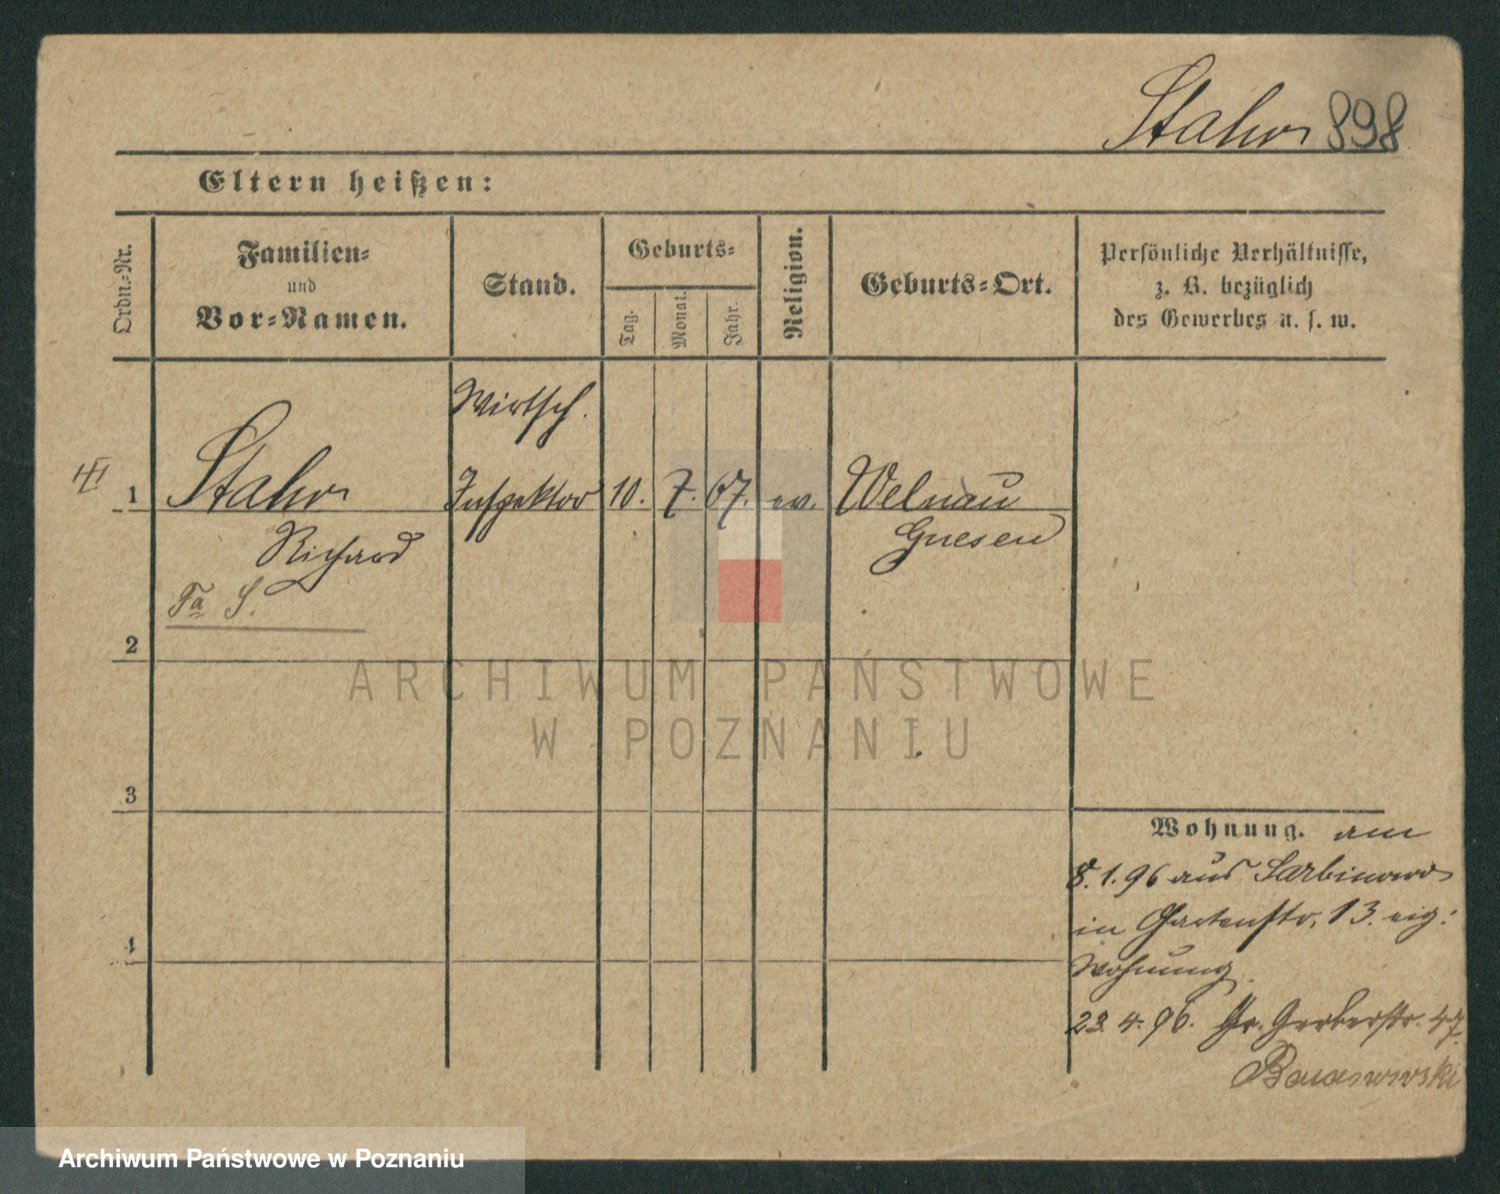 Stahr 898
Eltern heißen:
Ordn.-Nr.
Familien-
und
Vor-Namen.
Stand.
Geburts-
Tag.
Monat.
Jahr.
Religion.
Geburts-Ort.
Persönliche Verhältnisse,
z. B. bezüglich
des Gewerbes u. s. w.
Wirtsch.
1 Stahr Inspektor 10. 7. 67. ev. Welnau
Richard Gnesen
Fa S.
2
3
4
ARCHIWUM PAŃSTWOWE
W POZNANIU
Wohnung. am
8.1.96 aus Sarbinowo
in Gartenstr. 13. eig.
Wohnung.
23.4.96. Gr. Gerberstr. 47.
Archiwum Państwowe w Poznaniu